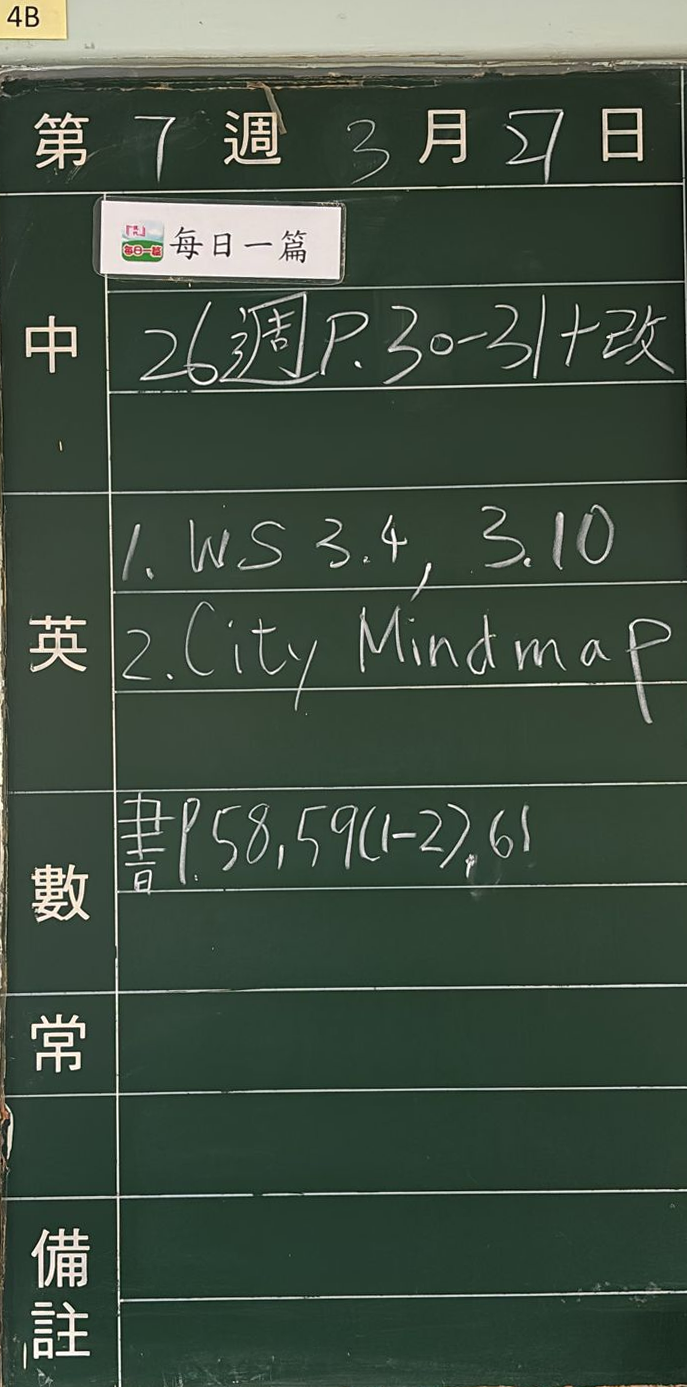 4B
第 7 週 3 月 27 日
每日一篇
中
26週 P.30-31+改
1. WS 3.4, 3.10
英
2. City Mindmap
書P.58,59(1-2),61
數
常
備
註